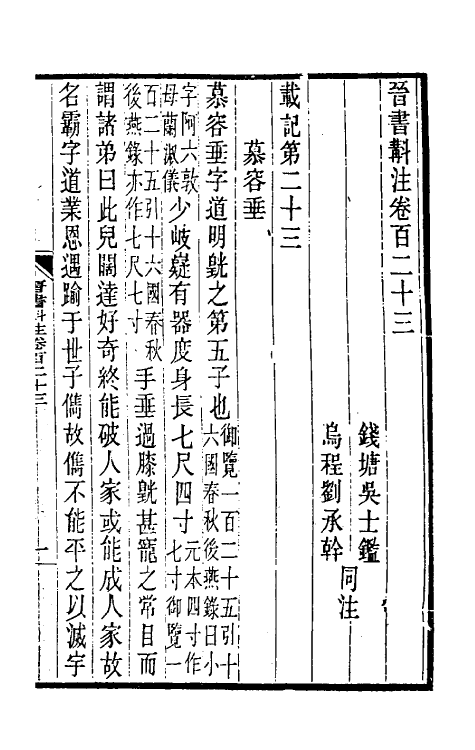 晉書斠注卷百二十三
錢塘吳士鑑
烏程劉承幹
同注
載記第二十三
慕容垂
慕容垂字道明皝之第五子也御覽一百二十五引十
六國春秋後燕錄曰小
字阿六敦
母蘭淑儀少岐嶷有器度身長七尺四寸元本四寸作
七寸御覽一
百二十五引十六國春秋
後燕錄亦作七尺七寸手垂過膝皝甚寵之常目而
謂諸弟曰此兒闊達好奇終能破人家或能成人家故
名霸字道業恩遇踰于世子儁故儁不能平之以滅宇
晉書斠注卷百二十三
一